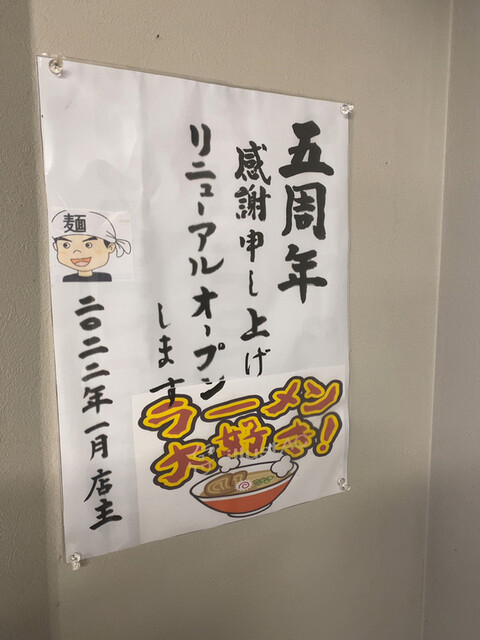 五周年
感謝申し上げ
リニューアルオープン
します
麺
二〇二二年一月 店主
ラーメン
大好き!